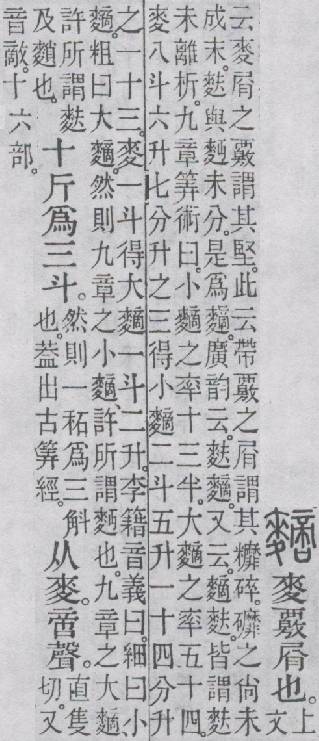 䵂麥覈屑也。上文
云麥屑之覈謂其堅。此云帶覈之屑謂其䊳碎。礳之尙未
成末。麩與麪未分。是爲䵂。廣韵云。麩䵂。又云。䵂麩。皆謂麩
未離析。九章筭術曰。小䵂之率十三半。大䵂之率五十四。
麥八斗六升七分升之三得小䵂二斗五升一十四分升
之一十三。麥一斗得大䵂一斗二升。李籍音義曰。細曰小
䵂。粗曰大䵂。然則九章之小䵂、許所謂麪也。九章之大䵂、
許所謂麩及䴹也。十斤爲三斗。然則一䄷爲三斛也。葢出古筭經。从麥。啻聲。直隻切。又
音敵。十六部。